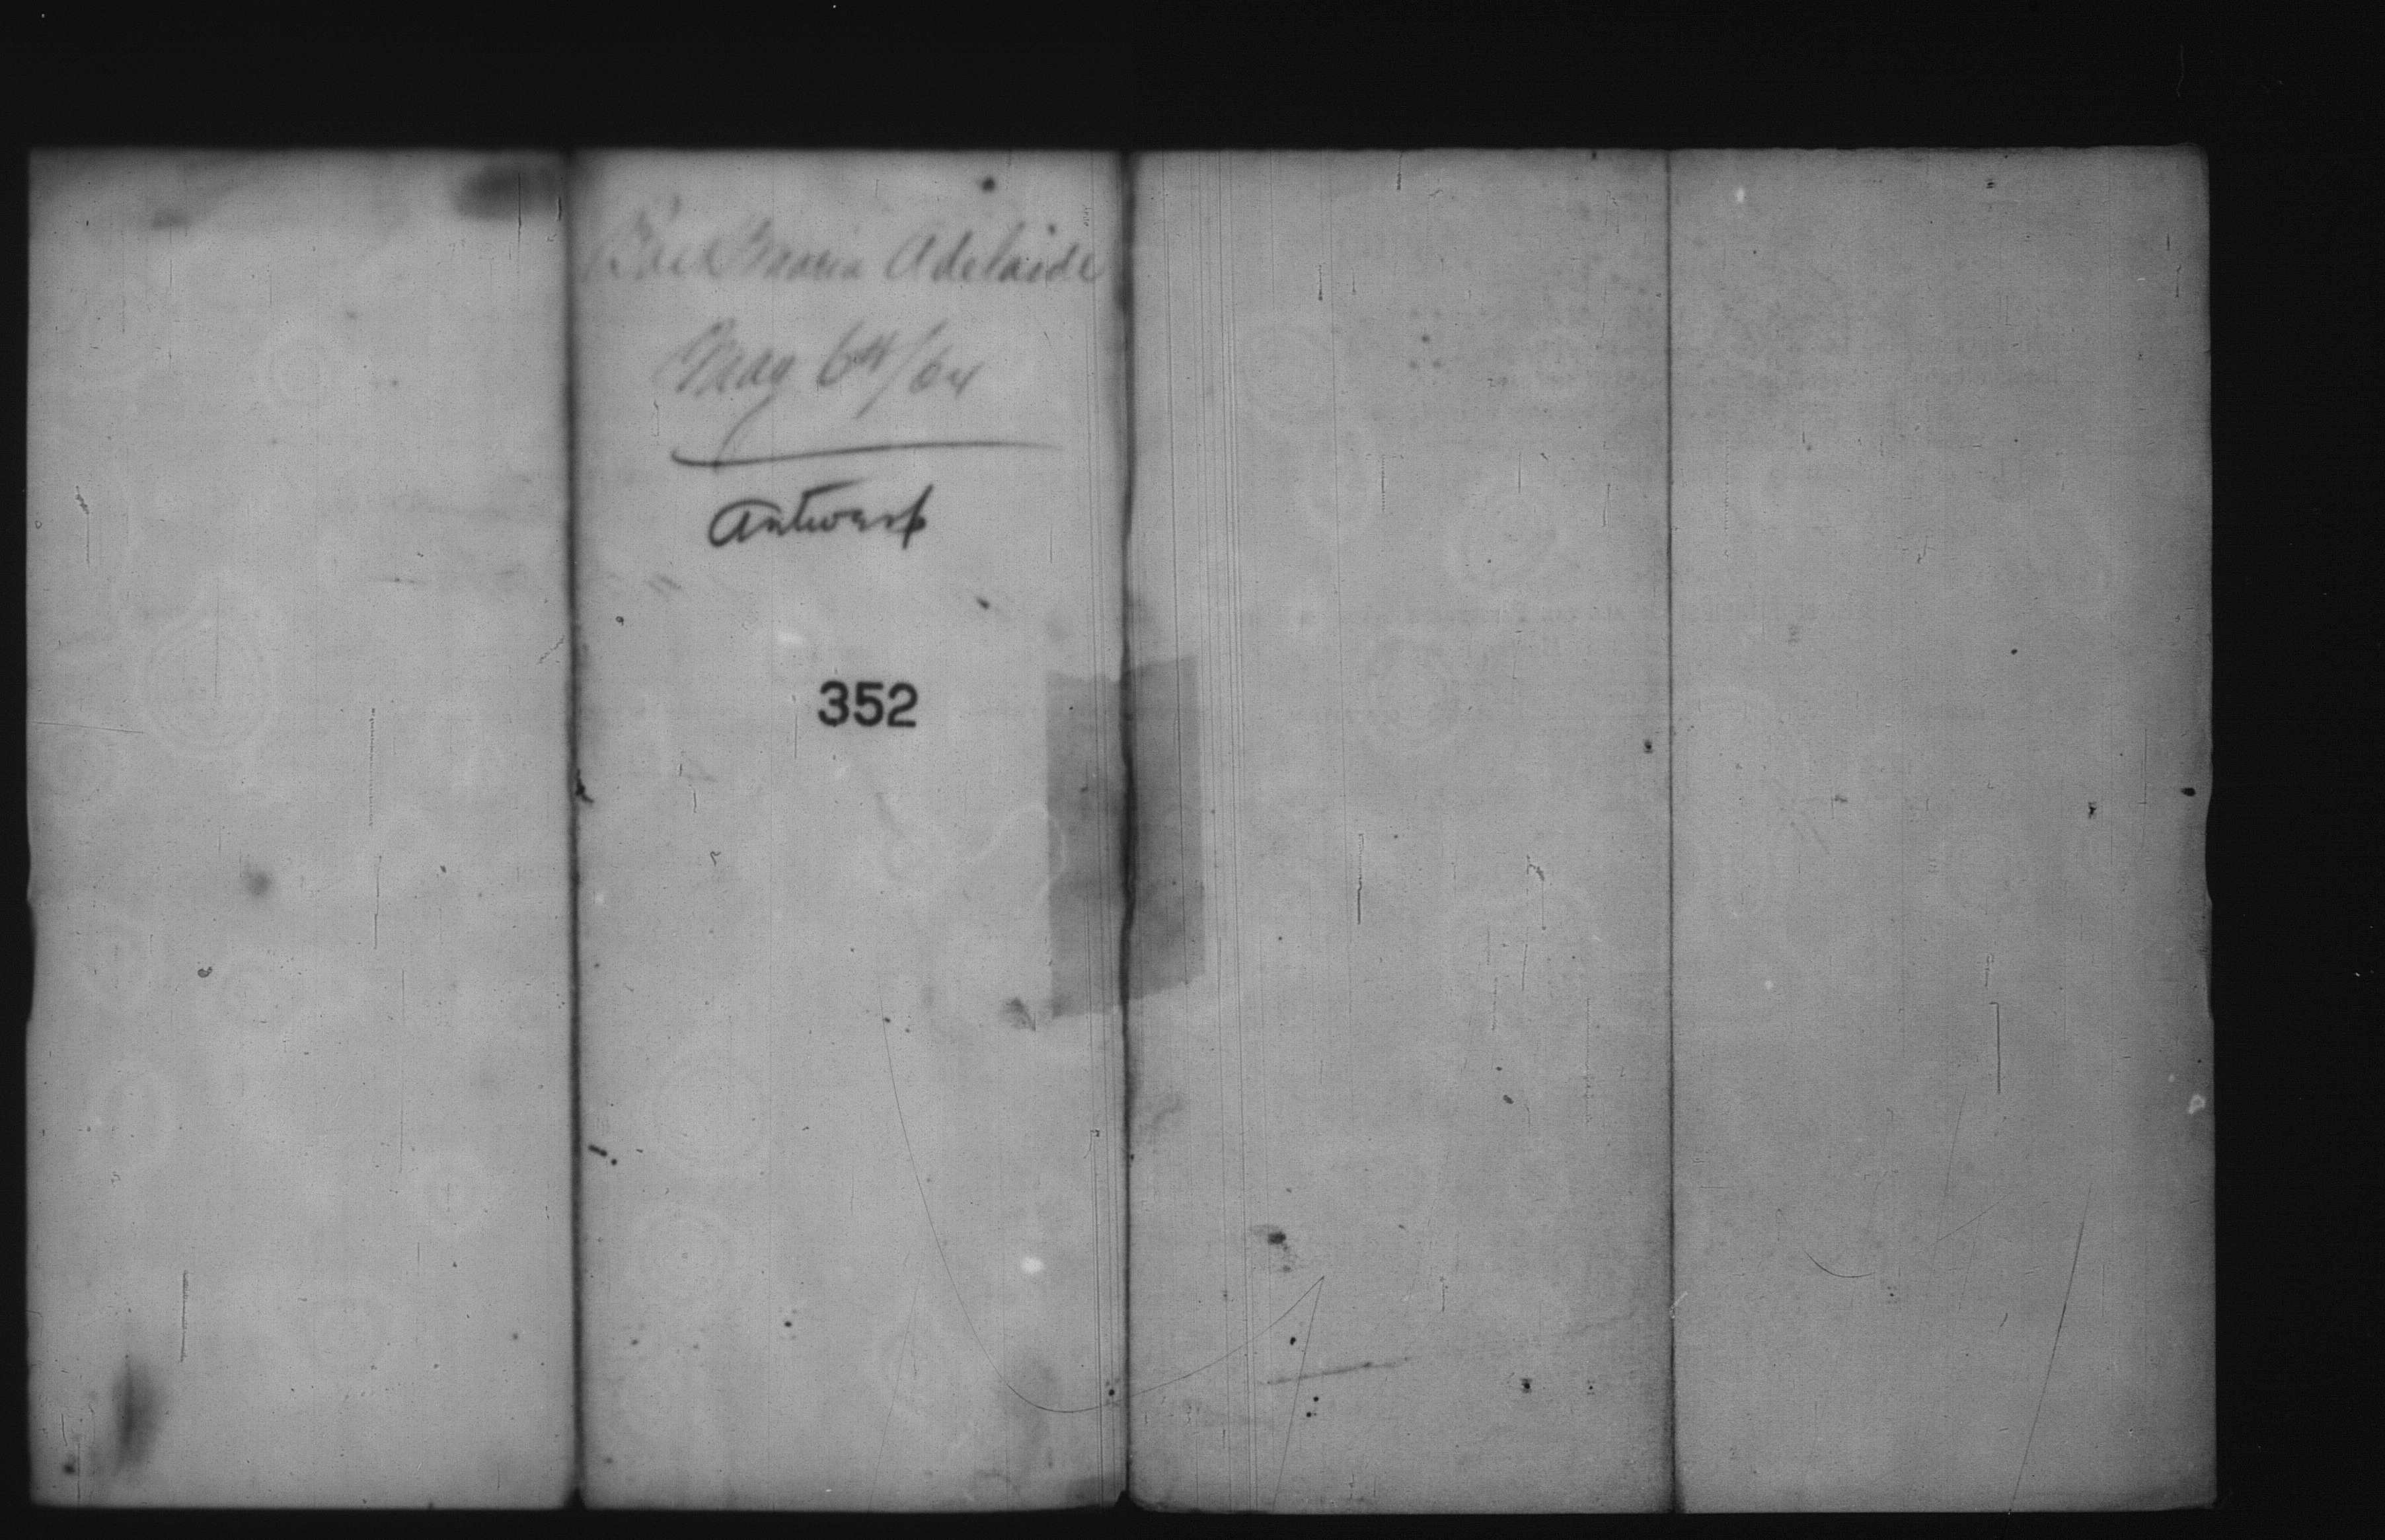 Bark Maria Adelaide
May 6th/64
Antwerp
352